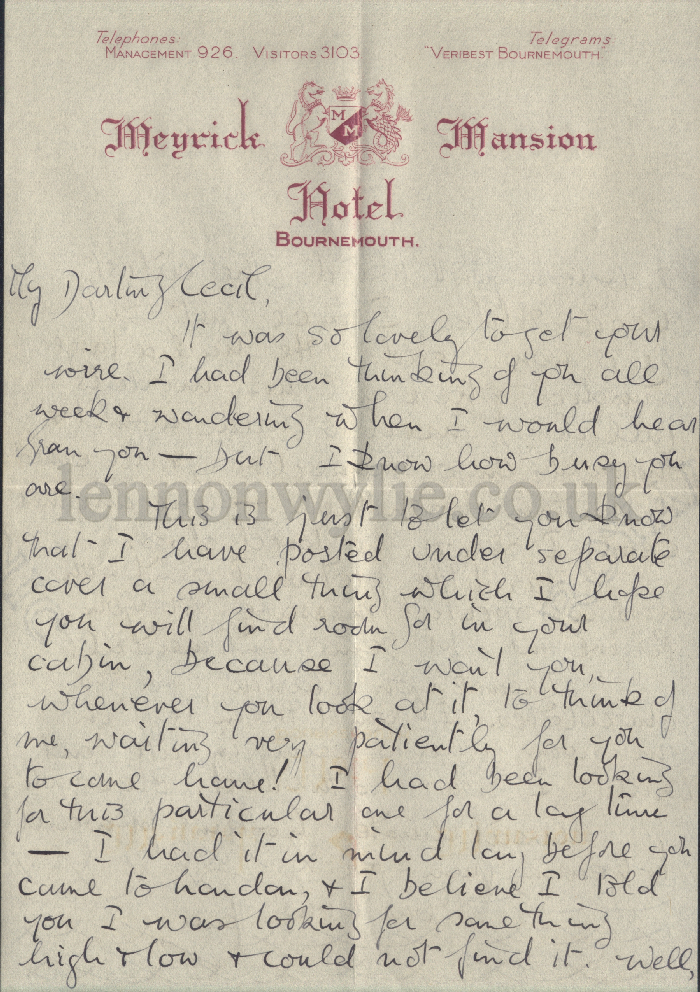 Telephones: Telegrams:
MANAGEMENT 926. VISITORS 3103 "VERIBEST BOURNEMOUTH."
M M
Meyrick Mansion
Hotel
BOURNEMOUTH.
My Darling Cecil,
It was so lovely to get your
wire. I had been thinking of you all
week & wondering when I would hear
from you — but I know how busy you
are.
lennonwylie.co.uk
This is just to let you know
that I have posted under separate
cover a small thing which I hope
you will find room for in your
cabin, because I want you,
whenever you look at it, to think of
me, waiting very patiently for you
to come home! I had been looking
for this particular one for a long time
— I had it in mind long before you
came to London, & I believe I told
you I was looking for something
high & low & could not find it. Well,